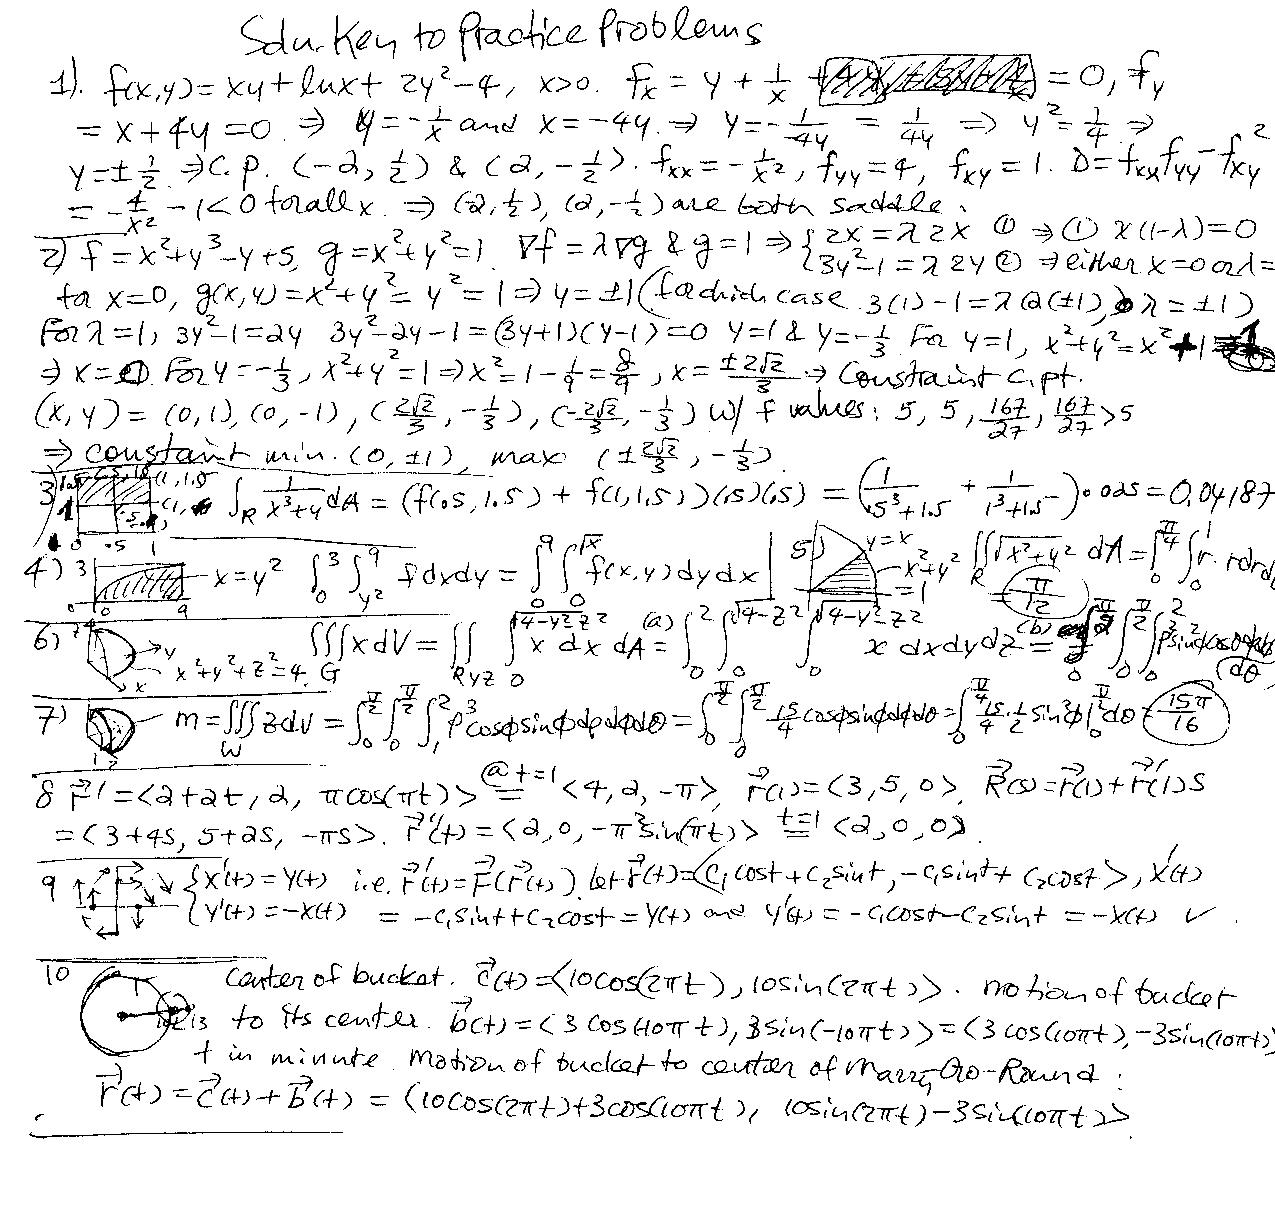 Soln. Key to Practice Problems
1). f(x,y) = xy + ln x + 2y² - 4, x>0. fx = y + 1/x = 0, fy
= x + 4y = 0. ⇒ y = -1/x and x = -4y. ⇒ y = -1/-4y = 1/4y ⇒ y² = 1/4 ⇒
y = ± 1/2. ⇒ C.p. (-2, 1/2) & (2, -1/2). fxx = -1/x², fyy = 4, fxy = 1. D = fxx fyy - fxy²
= -4/x² - 1 < 0 for all x. ⇒ (-2, 1/2), (2, -1/2) are both saddle.
2) f = x² + y³ - y + 5, g = x² + y² = 1. ∇f = λ∇g & g = 1 ⇒ { 2x = λ2x ① ⇒ ① x(1-λ) = 0
3y² - 1 = λ2y ② ⇒ either x = 0 or λ =
for x=0, g(x,y) = x² + y² = y² = 1 ⇒ y = ±1 (for which case 3(1) - 1 = λ2(±1), λ = ±1)
For λ = 1, 3y² - 1 = 2y 3y² - 2y - 1 = (3y+1)(y-1) = 0 y = 1 & y = -1/3. For y = 1, x² + y² = x² + 1 = 1
⇒ x = 0. For y = -1/3, x² + y² = 1 ⇒ x² = 1 - 1/9 = 8/9, x = ±2√2/3 ⇒ Constraint c.pt.
(x, y) = (0, 1), (0, -1), (2√2/3, -1/3), (-2√2/3, -1/3) w/ f values: 5, 5, 167/27, 167/27 > 5
⇒ constaint min. (0, ±1), max (±2√2/3, -1/3)
3) ∫R 1/(x³+y) dA = (f(.5, 1.5) + f(1, 1.5))(.5)(.5) = (1/(.5³+1.5) + 1/(1³+1.5)) · 0.25 = 0.04187
4) 3 x = y² ∫₀³ ∫y²⁹ f dxdy = ∫₀⁹ ∫₀√x f(x,y) dy dx 5) y = x x² + y² = 1 ∬R √(x²+y²) dA = ∫₀π/4 ∫₀¹ r · r dr dθ = π/12
6) x² + y² + z² = 4. ∭G x dV = ∬Ryz ∫₀√(4-y²-z²) x dx dA = (a) ∫₀² ∫₀√(4-z²) ∫₀√(4-y²-z²) x dx dy dz (b) = ∫₀π/2 ∫₀π/2 ∫₀² ρ³ sin²φ cosθ dρ dφ dθ
7) m = ∭W z dV = ∫₀π/2 ∫₀π/2 ∫₁² ρ³ cosφ sinφ dρ dφ dθ = ∫₀π/2 ∫₀π/2 15/4 cosφ sinφ dφ dθ = ∫₀π/4 15/4 · 1/2 sin²φ |₀π/2 dθ = 15π/16
8 r⃗' = <2+2t, 2, π cos(πt)> @t=1 = <4, 2, -π>, r⃗(1) = <3, 5, 0>, R⃗(s) = r⃗(1) + r⃗'(1)s
= <3+4s, 5+2s, -πs>. r⃗''(t) = <2, 0, -π² sin(πt)> t=1 = <2, 0, 0>.
9 { x'(t) = y(t) i.e. r⃗'(t) = F⃗(r⃗(t)). let r⃗(t) = <c₁ cost + c₂ sint, -c₁ sint + c₂ cost>, x'(t)
y'(t) = -x(t) = -c₁ sint + c₂ cost = y(t) and y'(t) = -c₁ cost - c₂ sint = -x(t) ✓.
10 Center of bucket. c⃗(t) = <10cos(2πt), 10sin(2πt)>. motion of bucket
to its center. b⃗(t) = <3 cos(-10πt), 3sin(-10πt)> = <3 cos(10πt), -3sin(10πt)>
t in minute. Motion of bucket to center of Marry-Go-Round:
r⃗(t) = c⃗(t) + b⃗(t) = <10cos(2πt) + 3cos(10πt), 10sin(2πt) - 3sin(10πt)>